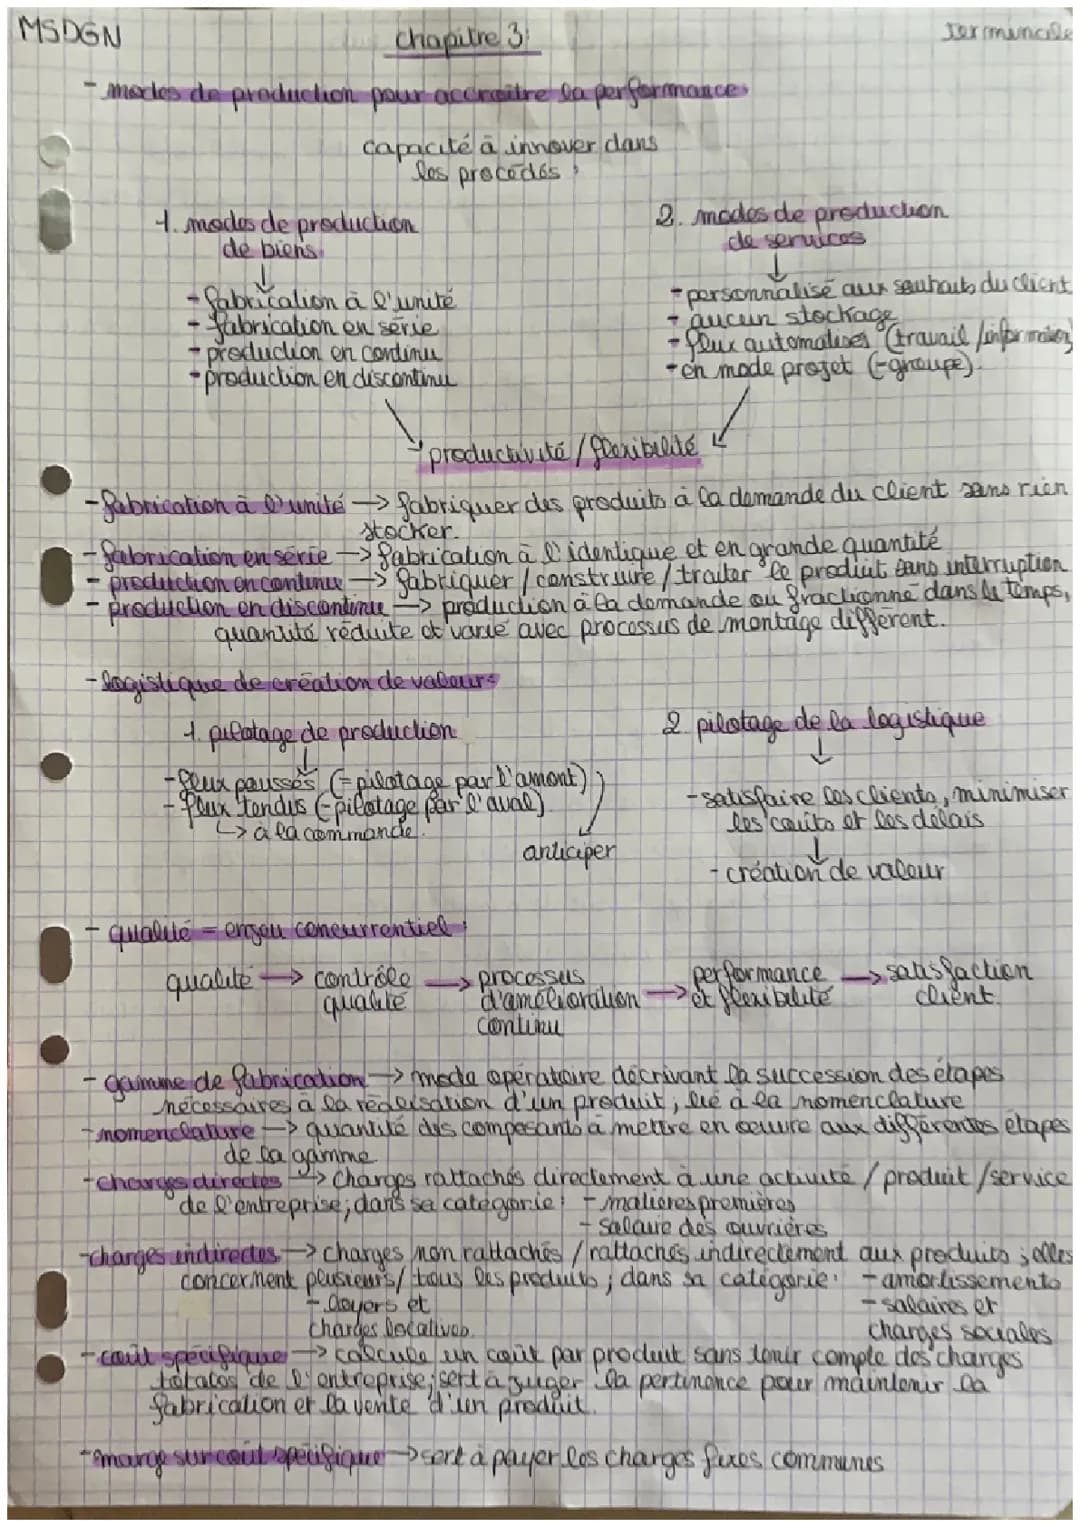 MSDGN
chapitre 3:
Terminale
- modes de production pour accroître la performance:
capacité à innover dans
les procédés :
1. modes de production
de biens:
2. modes de production
de services
- fabrication à l'unité
- fabrication en série
- production en continu
- production en discontinu
- personnalisé aux souhaits du client
- aucun stockage
- flux automatisés (travail / information)
- en mode projet (=groupe).
productivité / flexibilité
- fabrication à l'unité → fabriquer des produits à la demande du client sans rien
stocker.
- fabrication en série → fabrication à l'identique et en grande quantité
- production en continue → fabriquer / construire / traiter le produit sans interruption
- production en discontinue → production à la demande ou fractionné dans le temps,
quantité réduite et varié avec processus de montage différent.
- logistique de création de valeurs
1. pilotage de production
2. pilotage de la logistique
- flux poussés (= pilotage par l'amont)
- flux tendus (=pilotage par l'aval)
↳ à la commande.
anticiper
- satisfaire les clients, minimiser
les coûts et les délais
- création de valeur
- qualité = enjeu concurrentiel :
qualité → contrôle qualité → processus d'amélioration continu → performance et flexibilité → satisfaction client.
- gamme de fabrication → mode opératoire décrivant la succession des étapes
nécessaires à la réalisation d'un produit, lié à la nomenclature
- nomenclature → quantité des composants à mettre en oeuvre aux différentes étapes
de la gamme
- charges directes → charges rattachés directement à une activité / produit / service
de l'entreprise; dans sa catégorie: - matières premières
- salaire des ouvrières
- charges indirectes → charges non rattachés / rattachés indirectement aux produits ; elles
concernent plusieurs / tous les produits ; dans sa catégorie: - amortissements
- loyers et
charges locatives.
- salaires et
charges sociales
- coût spécifique → calcule un coût par produit sans tenir compte des charges
totales de l'entreprise; sert à juger la pertinence pour maintenir la
fabrication et la vente d'un produit.
- marge sur coût spécifique → sert à payer les charges fixes communes